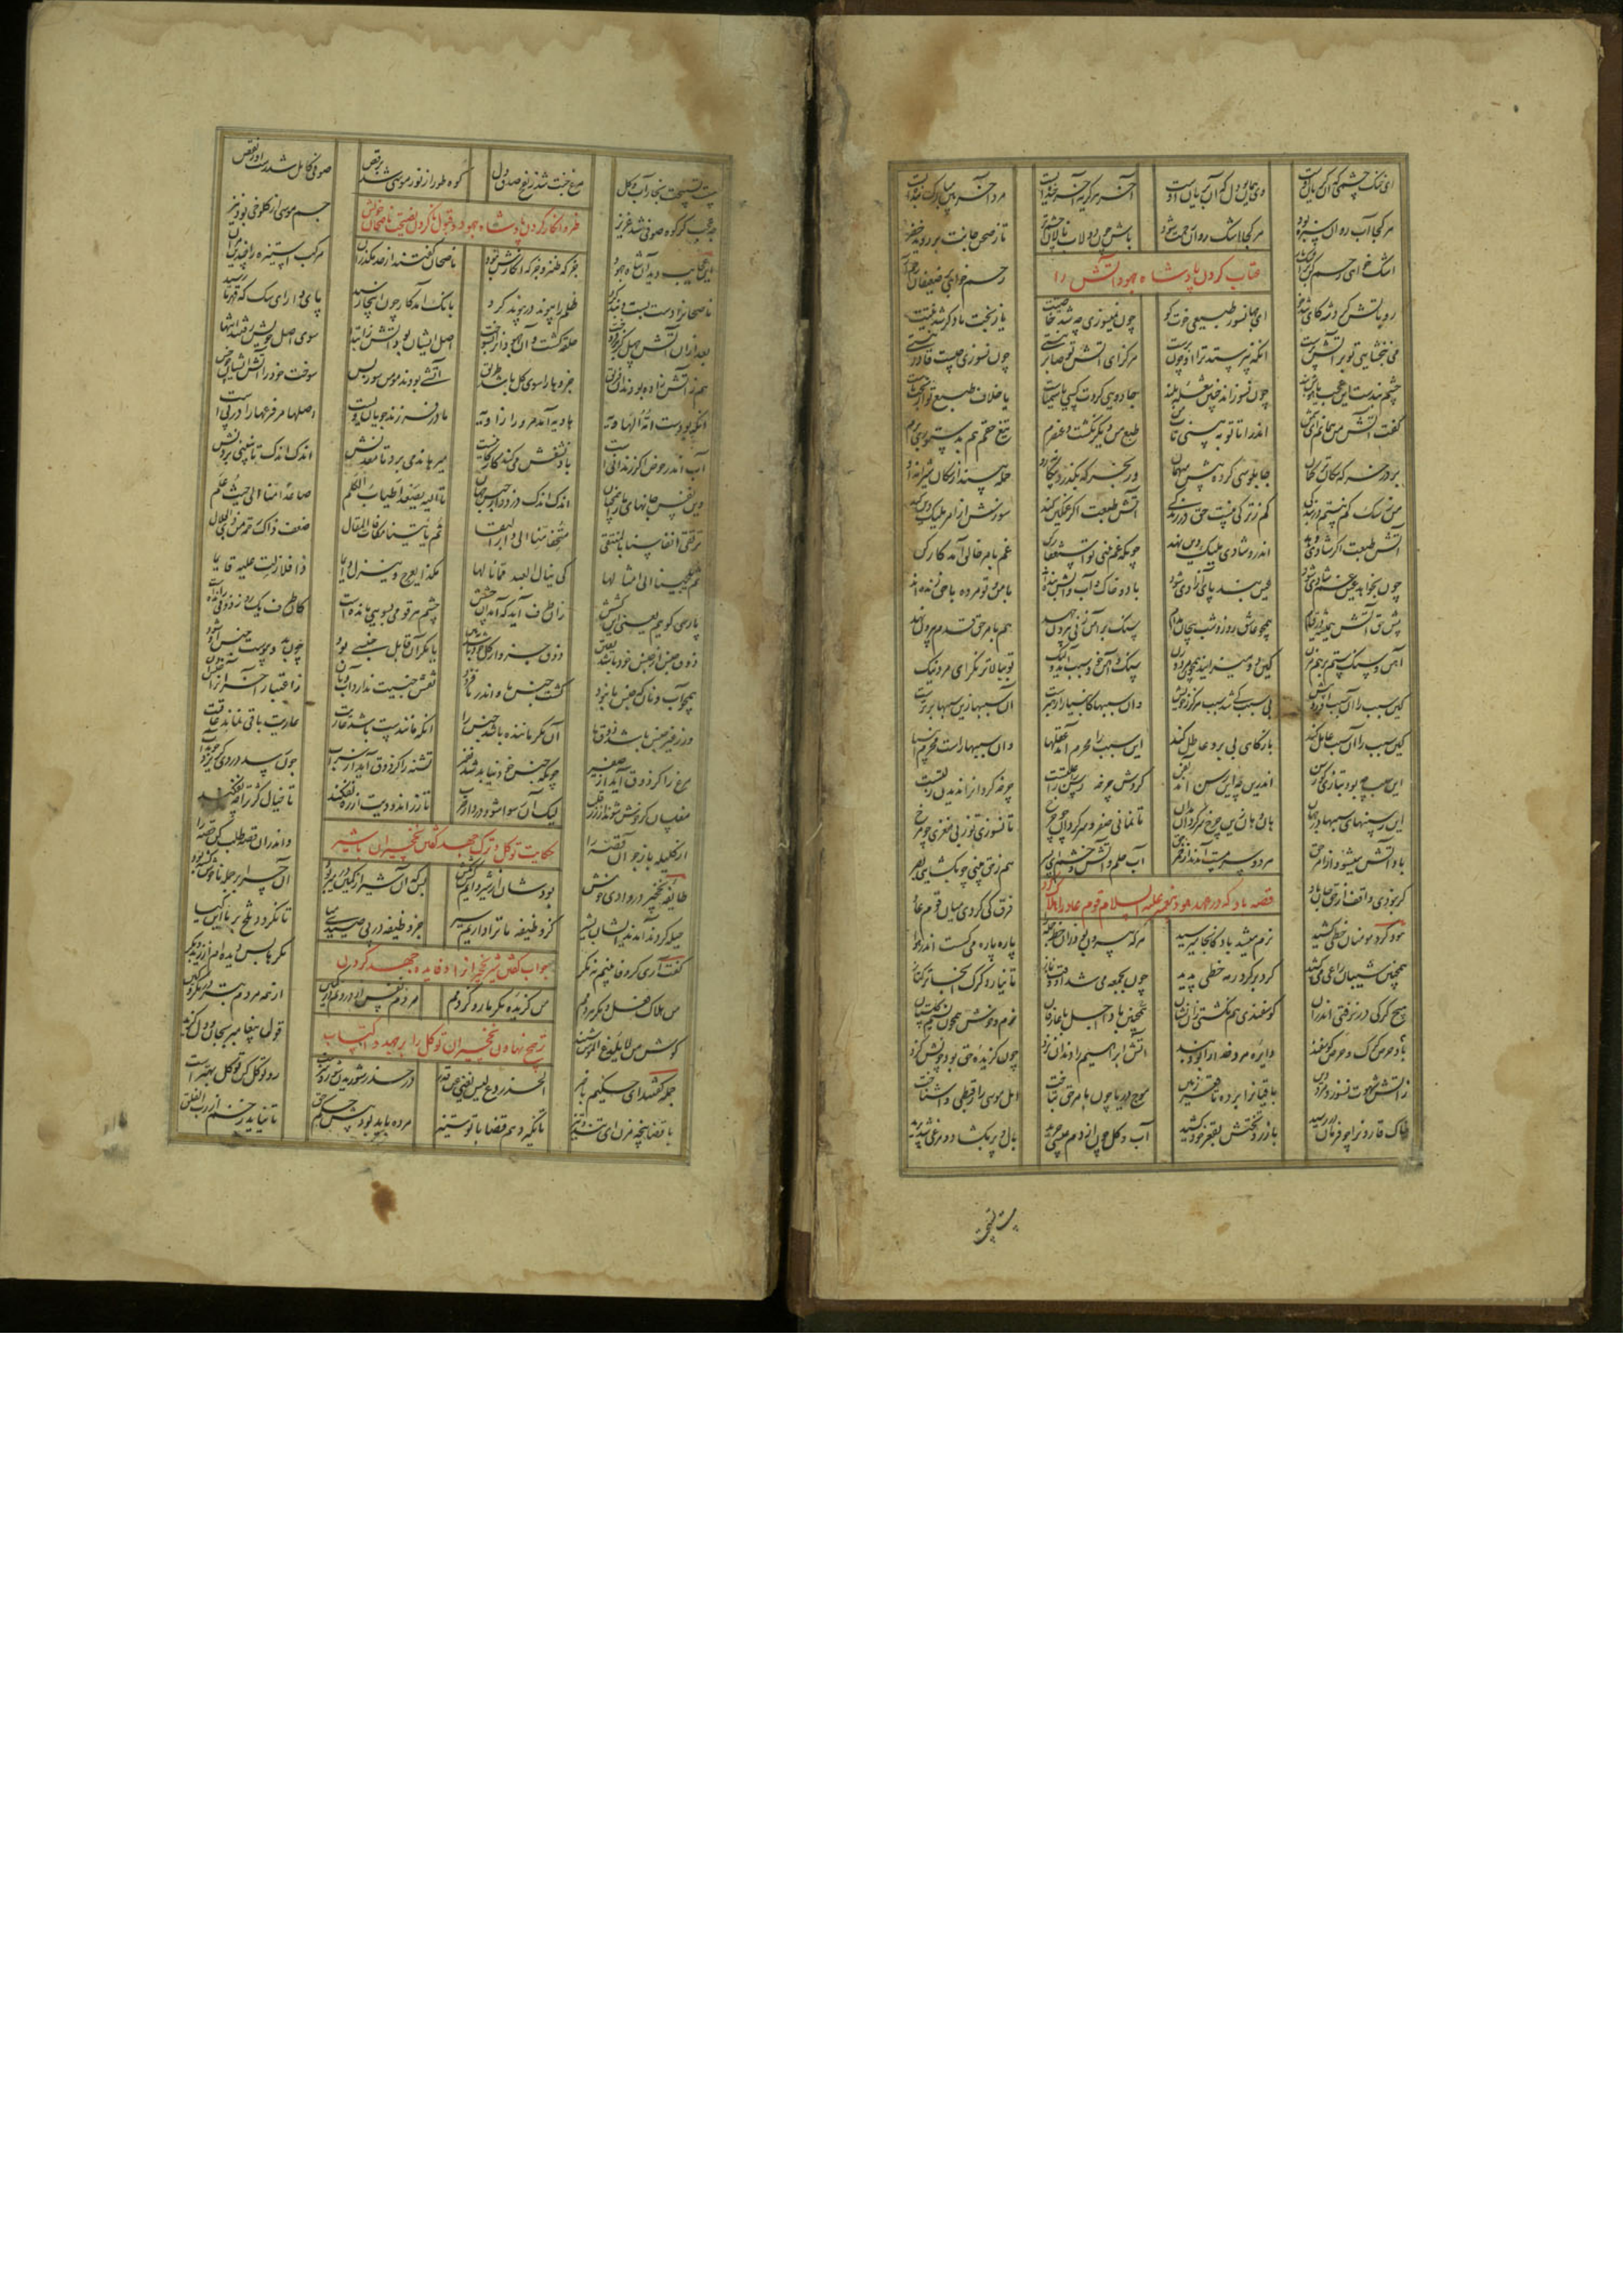 ای خنک چشمی که آن گریان اوست وی همایون دل که آن بریان اوست آخر هر گریه آخر خنده ایست مرد آخر بین مبارک بنده ایست
هر کجا آب روان سبزه بود هر کجا اشک روان رحمت شود باش چون دولاب نالان چشم تر تا ز صحن جانت بر روید خضر
اشک خواهی رحم کن بر اشکبار رحم خواهی بر ضعیفان رحم آر
عتاب کردن پادشاه جهود آتش را
رو باتش کرد شه کای تندخو آن جهان سوز طبیعی خوت کو چون نمیسوزی چه شد خاصیتت یا ز بخت ما دگر شد نیتت
می نبخشایی تو بر آتش پرست آنکه نپرستد ترا او چون برست هرگز ای آتش تو صابر نیستی چون نسوزی چیست قادر نیستی
چشم بندست این عجب یا هوش بند چون نسوزاند چنین شعله بلند جادویی کردت کسی یا سیمیاست یا خلاف طبع تو از بخت ماست
گفت آتش من همانم آتشم اندر آ تا تو ببینی تابشم طبع من دیگر نگشت و عنصرم تیغ حقم هم بدستوری برم
بر در خرگه سگان ترکمان چاپلوسی کرده پیش میهمان ور بخرگه بگذرد بیگانه رو حمله بیند از سگان شیرانه او
من ز سگ کم نیستم در بندگی کم ز ترکی نیست حق در زندگی آتش طبعت اگر غمگین کند سوزش از امر ملیک دین کند
آتش طبعت اگر شادی دهد اندرو شادی ملیک دین نهد چونکه غم بینی تو استغفار کن غم بامر خالق آمد کار کن
چون بخواهد عین غم شادی شود عین بند پای آزادی شود باد و خاک و آب و آتش بنده اند با من و تو مرده با حق زنده اند
پیش حق آتش همیشه در قیام همچو عاشق روز و شب پیچان مدام سنگ بر آهن زنی بیرون جهد هم بامر حق قدم بیرون نهد
آهن و سنگ ستم بر هم مزن کین دو میزایند همچو مرد و زن سنگ و آهن خود سبب آمد ولیک تو ببالاتر نگر ای مرد نیک
کین سبب را آن سبب آورد پیش بی سبب کی شد سبب هرگز ز خویش وان سببها کانبیا را رهبرست آن سببها زین سببها برترست
کین سبب را آن سبب عامل کند بازگاهی بی بر و عاطل کند این سبب را محرم آمد عقلها وان سببهاراست محرم انبیا
این سبب چه بود بتازی گو رسن اندرین چه این رسن آمد بفن گردش چرخه رسن را علتست چرخه گردان را ندیدن زلتست
این رسنهای سببها در جهان هان و هان زین چرخ سرگردان مدان تا نمانی صفر و سرگردان چو چرخ تا نسوزی تو ز بی مغزی چو مرخ
باد آتش میشود از امر حق هر دو سرمست آمدند از خمر حق آب حلم و آتش خشم ای پسر هم ز حق بینی چو بگشایی بصر
گر نبودی واقف از حق جان باد فرق کی کردی میان قوم عاد
قصه باد که در عهد هود پیغمبر علیه السلام قوم عاد را هلاک کرد
هود گرد مومنان خطی کشید نرم میشد باد کانجا میرسید هر که بیرون بود زان خط جمله را پاره پاره می گسست اندر هوا
همچنین شیبان راعی می کشید گرد بر گرد رمه خطی پدید چون بجمعه می شد او وقت نماز تا نیارد گرگ آنجا ترکتاز
هیچ گرگی در نرفتی اندر آن گوسفندی هم نگشتی زان نشان همچنین باد اجل با عارفان نرم و خوش همچون نسیم بوستان
باد حرص گرگ و حرص گوسفند دایره مرد خدا را بود بند آتش ابراهیم را دندان نزد چون گزیده حق بود چونش گزد
ز آتش شهوت نسوزد مرد دین باقیان را برده تا قعر زمین موج دریا چون بامر حق بتاخت اهل موسی را ز قبطی وا شناخت
خاک قارون را چو فرمان در رسید با زر و تختش بقعر خود کشید آب و گل چون از دم عیسی چرید بال و پر بگشاد و مرغی شد پدید
هست تسبیحت
هست تسبیحت بجای آب و گل مرغ جنت شد ز نفخ صدق دل کوه طور از نور موسی شد برقص صوفی کامل شدست او ز نقص
چه عجب گر کوه صوفی شد عزیز جسم موسی از کلوخی بود نیز
طنز و انکار کردن پادشاه جهود و قبول ناکردن نصیحت ناصحان خویش
این عجایب دید آن شاه جهود جز که طنز و جز که انکارش نبود ناصحان گفتند از حد مگذران مرکب استیزه را چندین مران
ناصحانرا دست بست و بند کرد ظلم را پیوند در پیوند کرد بانگ آمد کار چون اینجا رسید پای دار ای سگ که قهر ما رسید
بعد از آن آتش چهل گز بر فروخت حلقه گشت و آن جهودانرا بسوخت اصل ایشان بود آتش ز ابتدا سوی اصل خویش رفتند انتها
هم ز آتش زاده بودند آن فریق جزوها را سوی کل باشد طریق آتشی بودند مومن سوز و بس سوخت خود را آتش ایشان چو خس
آنکه بودست امه الهاویه هاویه آمد مر ورا زاویه مادر فرزند جویان ویست اصلها مر فرعها را در پی است
آب اندر حوض اگر زندانی است باد نشفش می کند کارکانی است میرهاند می برد تا معدنش اندک اندک تا نبینی بردنش
وین نفس جانهای ما را همچنان اندک اندک دزدد از حبس جهان تا الیه یصعد اطیاب الکلم صاعدا منا الی حیث علم
ترتقی انفاسنا بالمنتقی متحفا منا الی دار البقا ثم یاتینا مکافات المقال ضعف ذاک رحمة من ذی الجلال
ثم یلجینا الی امثالها کی ینال العبد مما نالها هکذا یعرج و ینزل دایما ذا فلا زلت علیه قایما
پارسی گوییم یعنی این کشش زان طرف آید که آمد آن چشش چشم هر قومی بسویی مانده است کان طرف یک روز ذوقی رانده است
ذوق جنس از جنس خود باشد یقین ذوق جزو از کل خود باشد ببین یا مگر آن قابل جنسی بود چون بدو پیوست جنس او شود
همچو آب و نان که جنس ما نبود گشت جنس ما و اندر ما فزود نقش جنسیت ندارد آب و نان ز اعتبار آخر آن را جنس دان
ور ز غیر جنس باشد ذوق ما آن مگر ماننده باشد جنس را آنکه مانندست باشد عاریت عاریت باقی نماند عاقبت
مرغ را گر ذوق آید از صفیر چونکه جنس خود نیابد شد نفیر تشنه را گر ذوق آید از سراب چون رسد در وی گریزد جوید آب
مفلسان گر خوش شوند از زر قلب لیک آن رسوا شود در دار ضرب تا زر اندودیت از ره نفکند تا خیال کژ ترا چه نفکند
از کلیله باز جو آن قصه را واندر آن قصه طلب کن حصه را
حکایت توکل و ترک جهد گفتن نخچیران با شیر
طایفه نخچیر در وادی خوش بودشان از شیر دایم کشمکش بس که آن شیر از کمین در میربود آن چرا بر جمله ناخوش گشته بود
حیله کردند آمدند ایشان بشیر کز وظیفه ما ترا داریم سیر جز وظیفه در پی صیدی میا تا نگردد تلخ بر ما این گیا
گفت آری گر وفا بینم نه مکر مکرها بس دیده ام از زید و بکر
جواب گفتن شیر نخچیران را و فایده جهد کردن
من هلاک فعل و مکر مردمم من گزیده مکر مار و کژدمم مردم نفس از درونم در کمین از همه مردم بتر در مکر و کین
گوش من لا یلدغ المومن شنید قول پیغامبر بجان و دل گزید
ترجیح نهادن نخچیران توکل را بر جهد و اکتساب
جمله گفتند ای حکیم با خبر الحذر دع لیس یغنی عن قدر در حذر شوریدن شور و شرست رو توکل کن توکل بهترست
با قضا پنجه مزن ای تند و تیز تا نگیرد هم قضا با تو ستیز مرده باید بود پیش حکم حق تا نیاید زخم از رب الفلق